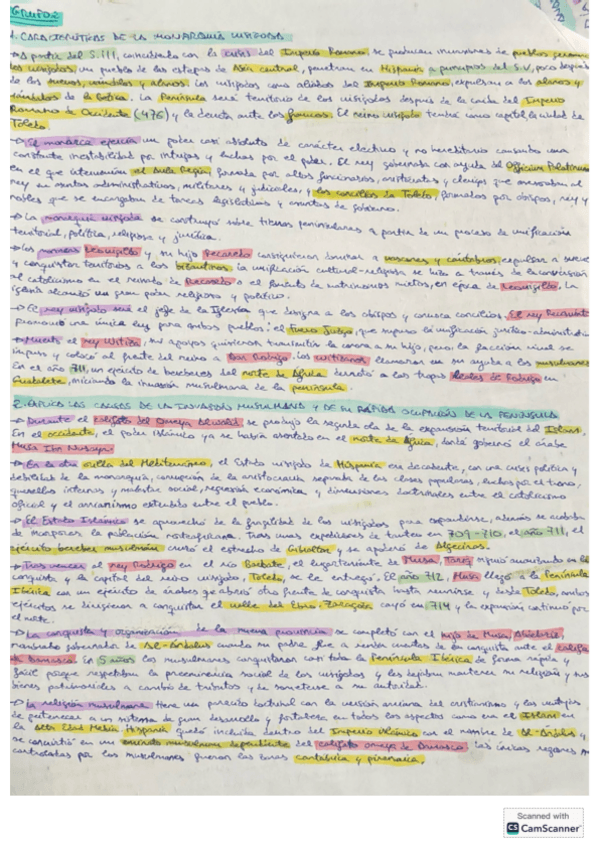 GRUPO 2
1. CARACTERÍSTICAS DE LA MONARQUÍA VISIGODA
→ A partir del S.III, coincidiendo con la crisis del Imperio Romano, se producen invasiones de pueblos
los visigodos, un pueblo de las estepas de Asia central, penetran en Hispania a principios del S.V, poco después
de los suevos, vándalos y alanos. Los visigodos como aliados del Imperio Romano, expulsan a los alanos y
vándalos de la Bética. La Península será territorio de los visigodos después de la caída del Imperio
Romano de Occidente (476) y la derrota ante los francos. El reino visigodo tendrá como capital la ciudad de
Toledo.
→ El monarca ejercía un poder casi absoluto de carácter electivo y no hereditario causando una
constante inestabilidad por intrigas y luchas por el poder. El rey gobernaba con ayuda del Officium Palatinum
en el que intervenían el Aula Regia, formada por altos funcionarios, aristócratas, clérigos que asesoraban al
rey en asuntos administrativos, militares y judiciales, y los concilios de Toledo, formados por obispos, rey y
nobles que se encargaban de tareas legislativas y asuntos de gobierno.
→ La monarquía visigoda se construyó sobre tierras peninsulares a partir de un proceso de unificación
territorial, política, religiosa y jurídica.
→ Los monarcas Leovigildo y su hijo Recaredo consiguieron dominar a vascones y cántabros, expulsar a suevos
y conquistar territorios a los bizantinos. La unificación cultural-religiosa se hizo a través de la conversión
al catolicismo en el reinado de Recaredo o el fomento de matrimonios mixtos, en época de Leovigildo. La
iglesia alcanzó un gran poder religioso y político.
→ El rey visigodo será el jefe de la Iglesia que designa a los obispos y convoca concilios. El rey Recesvinto
promovió una única ley para ambos pueblos: el Fuero Juzgo, que supuso la unificación jurídico-administrativa
→ Muerto el rey Witiza, sus apoyos quisieron transmitir la corona a su hijo, pero la facción rival se
impuso y colocó al frente del reino a Don Rodrigo. Los witizanos llamaron en su ayuda a los musulmanes
En el año 711, un ejército de bereberes del norte de África derrotó a las tropas leales de Rodrigo en
Guadalete, iniciando la invasión musulmana de la península.
2. EXPLICA LAS CAUSAS DE LA INVASIÓN MUSULMANA Y DE SU RÁPIDA OCUPACIÓN DE LA PENÍNSULA
→ Durante el califato del Omeya Al-Walid se produjo la segunda ola de la expansión territorial del Islam.
En el occidente, el poder islámico ya se había asentado en el norte de África, donde gobernó el árabe
Musa Ibn Nusayr.
→ En la otra orilla del Mediterráneo, el Estado visigodo de Hispania era decadente, con una crisis política y
debilidad de la monarquía, corrupción de la aristocracia separada de las clases populares, luchas por el trono,
querellas internas y malestar social, regresión económica y dimensiones doctrinales entre el catolicismo
oficial y el arrianismo extendido entre el pueblo.
→ El Estado Islámico se aprovechó de la fragilidad de los visigodos para expandirse, además se acababa
de incorporar la población norteafricana. Tras unas expediciones de tanteo en 709-710, el año 711, el
ejército bereber musulmán cruzó el estrecho de Gibraltar y se apoderó de Algeciras.
→ Tras vencer al rey Rodrigo en el río Barbate, el lugarteniente de Musa, Tariq siguió avanzando en la
conquista y la capital del reino visigodo, Toledo, se le entregó. El año 712, Musa llegó a la Península
Ibérica con un ejército de árabes que abrió otro frente de conquista hasta reunirse y desde Toledo, ambos
ejércitos se dirigieron a conquistar el valle del Ebro. Zaragoza cayó en 714 y la expansión continuó por
el norte.
→ La conquista y organización de la nueva provincia se completó con el hijo de Musa, Abdelaziz,
nombrado gobernador de Al-Ándalus cuando su padre fue a rendir cuentas de la conquista ante el califa
de Damasco. En 5 años los musulmanes conquistaron casi toda la Península Ibérica de forma rápida y
fácil porque respetaban la preeminencia social de los visigodos y les dejaban mantener su religión y sus
bienes patrimoniales a cambio de tributos y de someterse a su autoridad.
→ La religión musulmana tiene un parecido doctrinal con la versión arriana del cristianismo y las ventajas
de pertenecer a un sistema de gran desarrollo y fortaleza en todos los aspectos como era el Islam en
la Alta Edad Media. Hispania quedó incluida dentro del Imperio Islámico con el nombre de Al-Ándalus y
se convirtió en un emirato musulmán dependiente del califato omeya de Damasco. Las únicas regiones no
controladas por los musulmanes fueron las zonas cantábrica y pirenaica.
Scanned with
CS CamScanner